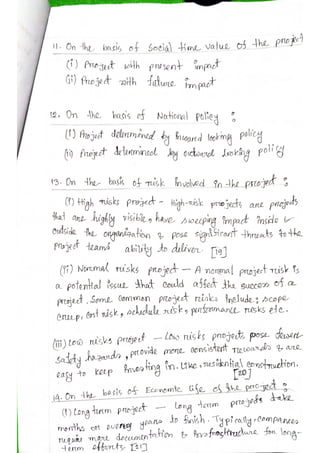 11. On the basis of Social time value of the project
(i) Project with present impact
(ii) Project with future impact
12. On the basis of National policy :
(i) Project determined by inward looking policy
(ii) Project determined by outward looking policy
13. On the basis of risk involved in the project :
(i) High risks project - High-risk projects are projects
that are highly visible, have sweeping impact inside &
outside the organization & pose significant threats to the
project teams ability to deliver. [19]
(ii) Normal risks project - A normal project risk is
a potential issue that could affect the success of a
project. Some common project risks include; scope
creep, cost risk, schedule risk, performance risks etc.
(iii) Low risks project - Low risks projects pose fewer
safety hazards, provide more consistent rewards & are
easy to keep investing in. Like, residential construction.
[20]
14. On the basis of Economic life of the project :
(i) Long term project - Long term projects take
months or every years to finish. Typically, companies
require more documentation & infrastructure for long-
term efforts [21]